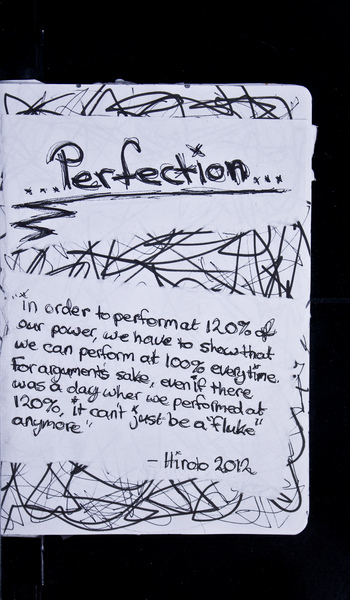 ...Perfection...
"in order to perform at 120% of
our power, we have to show that
we can perform at 100% everytime.
For arguments sake, even if there
was a day wher we performed at
120%, it can't just be a "fluke"
anymore"
- Hiroto 2012